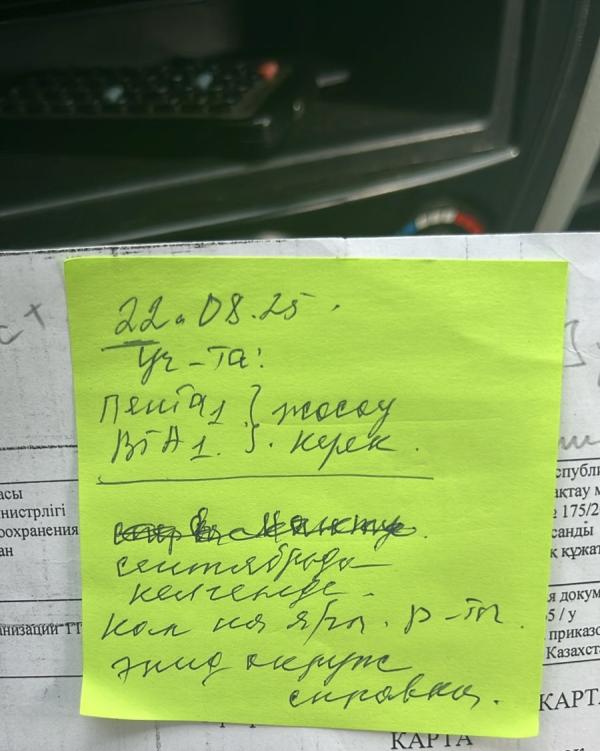 22.08.25.
Уч-та:
Пента1 } жасау
ВГА1. } керек.
сентябрьде
келгенде.
кал на я/гл. р-ты.
эпид окруж
справка.
асы
инистрлігі
оохранения
ан
анизации
спубли
ақтау м
175/2
санды
қ құжат
я докум
5 / у
приказо
Казахста
КАРТА
КАРТ